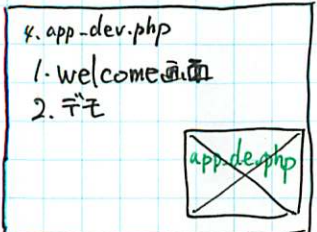 4. app_dev.php
1. welcome画面
2. デモ
app_de.php